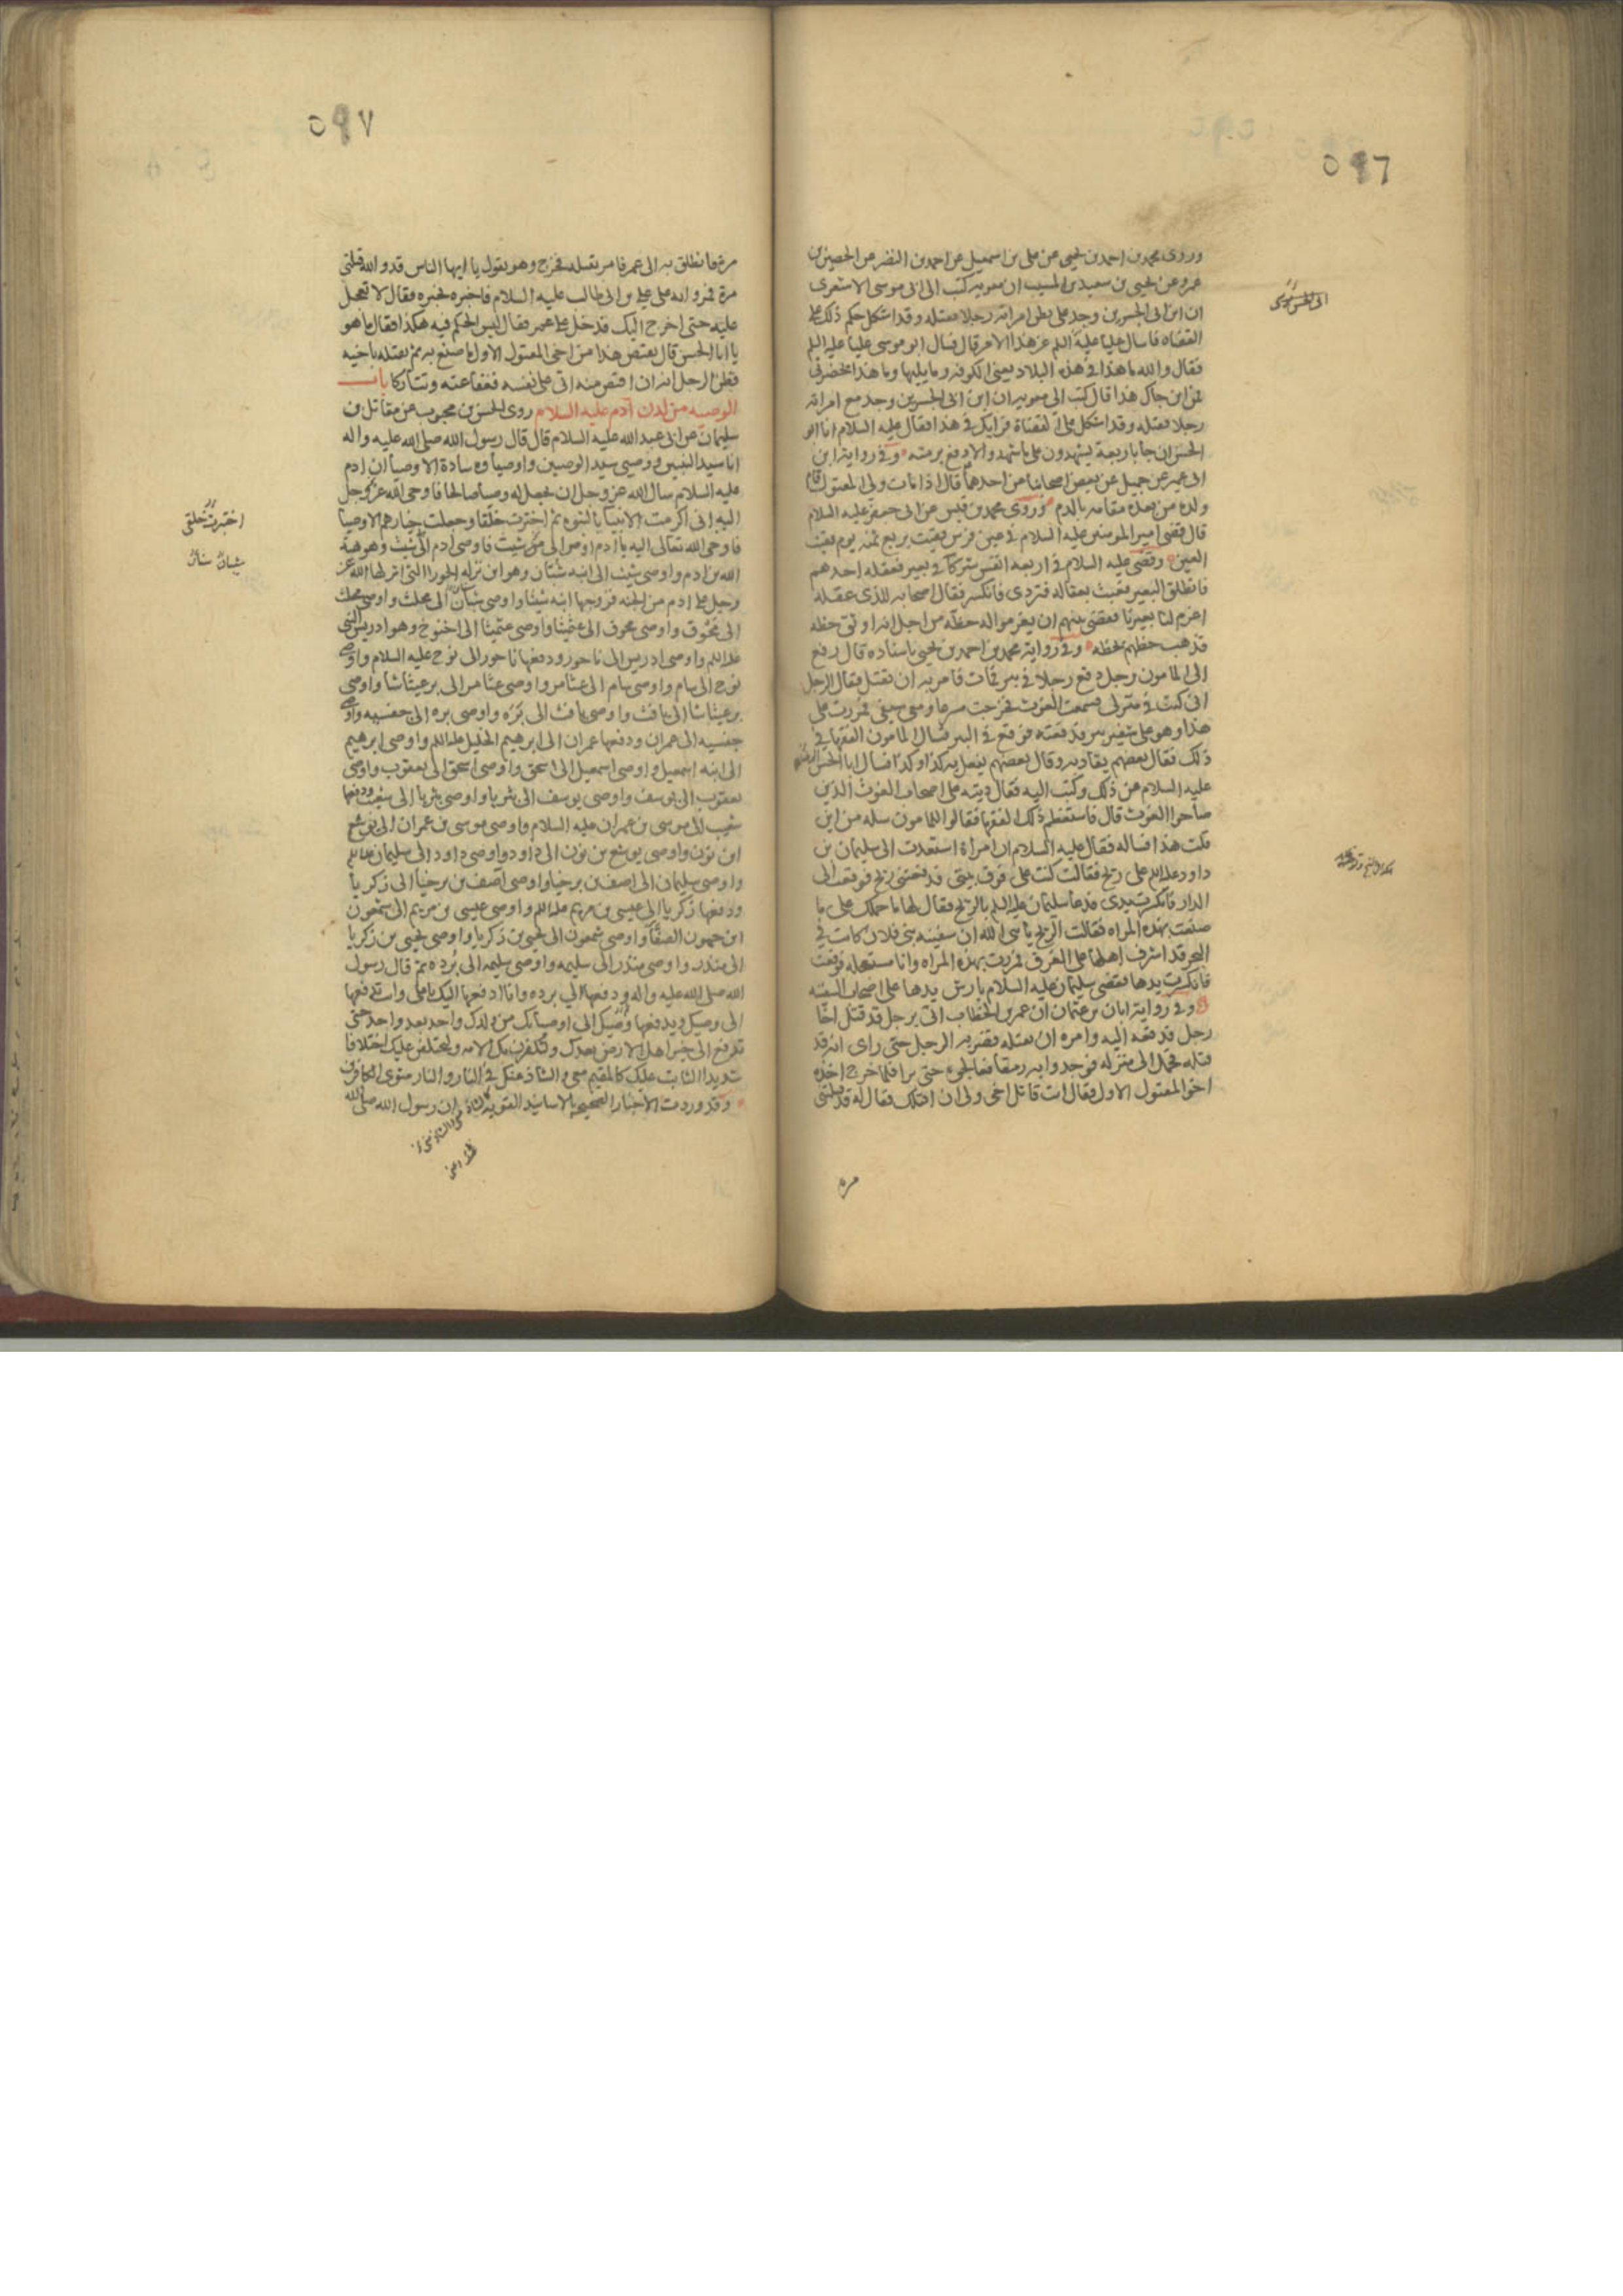 ٥٩٦
وروى محمد بن احمد بن يحيى عن على بن اسمعيل عن احمد بن النضر عن الحصين بن
عمرو عن يحيى بن سعيد بن المسيب ان معويه كتب الى ابى موسى الاشعرى
ان ابن ابى الجسرين وجد على بطن امراته رجلا فقتله وقد اشكل حكم ذلك على
القضاه فاسال عليا عليه السلم عن هذا الامر قال فسال ابو موسى عليا عليه السلم
فقال والله ما هذا فى هذه البلاد يعنى الكوفه وما يليها وما هذا بحضرتى
فمن اين جاك هذا قال كتب الى معويه ان ابن ابى الجسرين وجد مع امراته
رجلا فقتله وقد اشكل على القضاة فرايك فى هذا فقال عليه السلام انا ابو
الحسن ان جا باربعة يشهدون على ما شهد والا دفع برمته وفى رواية ابن
ابى عمير عن جميل عن بعض اصحابنا عن احدهما قال اذا مات ولى المقتول قام
ولده من بعده مقامه بالدم وروى محمد بن قيس عن ابى جعفر عليه السلام
قال قضى امير المومنين عليه السلام فى عين فرس فقيت بربع ثمنه يوم فقيت
العين وقضى عليه السلام فى اربعة انفس شركا فى بعير فعقله احدهم
فانطلق البعير فعبث بعقاله فتردى فانكسر فقال اصحابه للذى عقله
اغرم لنا بعيرنا فقضى بينهم ان يغرموا له حظه من اجل انه اوثق حظه
فذهب حظهم بحظه وفى رواية محمد بن احمد بن يحيى باسناده قال رفع
الى المامون رجل دفع رجلا فى بير فمات فامر به ان يقتل فقال الرجل
انى كنت فى منزلى فسمعت الغوث فخرجت مسرعا ومعى سيفى فمررت على
هذا وهو على شفير بير فدفعته فوقع فى البير فسال المامون الفقها فى
ذلك فقال بعضهم يقاد به وقال بعضهم يفعل به كذا وكذا فسال ابا الحسن
عليه السلام عن ذلك وكتب اليه فقال ديته على اصحاب الغوث الذين
صاحوا الغوث قال فاستعظم ذلك الفقها فقالوا للمامون سله من اين
قلت هذا فساله فقال عليه السلام ان امراة استعدت الى سليمان بن
داود عليه السلم على ريح فقالت كنت على فوق بيتى فدفعتنى ريح فوقعت الى
الدار فانكسرت يدى فدعا سليمان عليه السلم بالريح فقال لها ما حملك على ما
صنعت بهذه المراه فقالت الريح يا نبى الله ان سفينه بنى فلان كانت فى
البحر قد اشرف اهلها على الغرق فمررت بهذه المراه وانا مستعجله فوقعت
فانكسرت يدها فقضى سليمان عليه السلام بارش يدها على اصحاب السفينه
وفى رواية ابان بن عثمان ان عمر بن الخطاب اتى برجل قد قتل اخا
رجل فدفعه اليه وامره ان يقتله فضربه الرجل حتى راى انه قد
قتله فحمل الى منزله فوجدوا به رمقا فعالجوه حتى برا فلما خرج اخذه
اخو المقتول الاول فقال انت قاتل اخى ولى ان اقتلك فقال له قد قتلتنى
مره
٥٩٧
مرة فانطلق به الى عمر فامر بقتله فخرج وهو يقول يا ايها الناس قد والله قتلنى
مرة فمروا به على على بن ابى طالب عليه السلام فاخبره خبره فقال لا تعجل
عليه حتى اخرج اليك فدخل على عمر فقال ليس الحكم فيه هكذا فقال ما هو
يا ابا الحسن قال يقتص هذا من اخى المقتول الاول ما صنع به ثم يقتله باخيه
فظن الرجل انه ان اقتص منه اتى على نفسه فعفا عنه وتتاركا باب
الوصيه من لدن آدم عليه السلام روى الحسن بن محبوب عن مقاتل بن
سليمان عن ابى عبد الله عليه السلام قال قال رسول الله صلى الله عليه واله
انا سيد النبيين ووصيى سيد الوصيين واوصياؤه سادة الاوصيا ان ادم
عليه السلام سال الله عز وجل ان يجعل له وصيا صالحا فاوحى الله عز وجل
اليه انى اكرمت الانبيا بالنبوة ثم اخترت خلقا وجعلت خيارهم الاوصيا
فاوحى الله تعالى اليه يا ادم اوص الى شيث فاوصى ادم الى شيث وهو هبة
الله بن ادم واوصى شيث الى ابنه شبان وهو ابن نزله الحورا التى انزلها الله عز
وجل على ادم من الجنه فزوجها ابنه شيثا واوصى شبان الى محلث واوصى محلث
الى محوق واوصى محوق الى عثميثا واوصى عثميثا الى اخنوخ وهو ادريس النبى
عليه السلم واوصى ادريس الى ناحور ودفعها ناحور الى نوح عليه السلام واوصى
نوح الى سام واوصى سام الى عثامر واوصى عثامر الى برعيثاشا واوصى
برعيثاشا الى يافث واوصى يافث الى بره واوصى بره الى جفسيه واوصى
جفسيه الى عمران ودفعها عمران الى ابرهيم الخليل عليه السلم واوصى ابرهيم
الى ابنه اسمعيل واوصى اسمعيل الى اسحق واوصى اسحق الى يعقوب واوصى
يعقوب الى يوسف واوصى يوسف الى بثريا واوصى بثريا الى شعيب ودفعها
شعيب الى موسى بن عمران عليه السلام واوصى موسى بن عمران الى يوشع
ابن نون واوصى يوشع بن نون الى داود واوصى داود الى سليمان عليه السلم
واوصى سليمان الى اصف بن برخيا واوصى آصف بن برخيا الى زكريا
ودفعها زكريا الى عيسى بن مريم عليه السلم واوصى عيسى بن مريم الى شمعون
ابن حمون الصفا واوصى شمعون الى يحيى بن زكريا واوصى يحيى بن زكريا
الى منذر واوصى منذر الى سليمه واوصى سليمه الى برده ثم قال رسول
الله صلى الله عليه واله ودفعها الى برده وانا ادفعها اليك يا على وانت تدفعها
الى وصيك ويدفعها وصيك الى اوصيائك من ولدك واحد بعد واحد حتى
تدفع الى خير اهل الارض بعدك ولتكفرن بك الامه ولتختلفن عليك اختلافا
شديدا الثابت عليك كالمقيم معى والشاذ عنك فى النار والنار مثوى الكافرين
وقد وردت الاخبار الصحيحه بالاسانيد القويه ان رسول الله صلى الله
اخترت خلقى